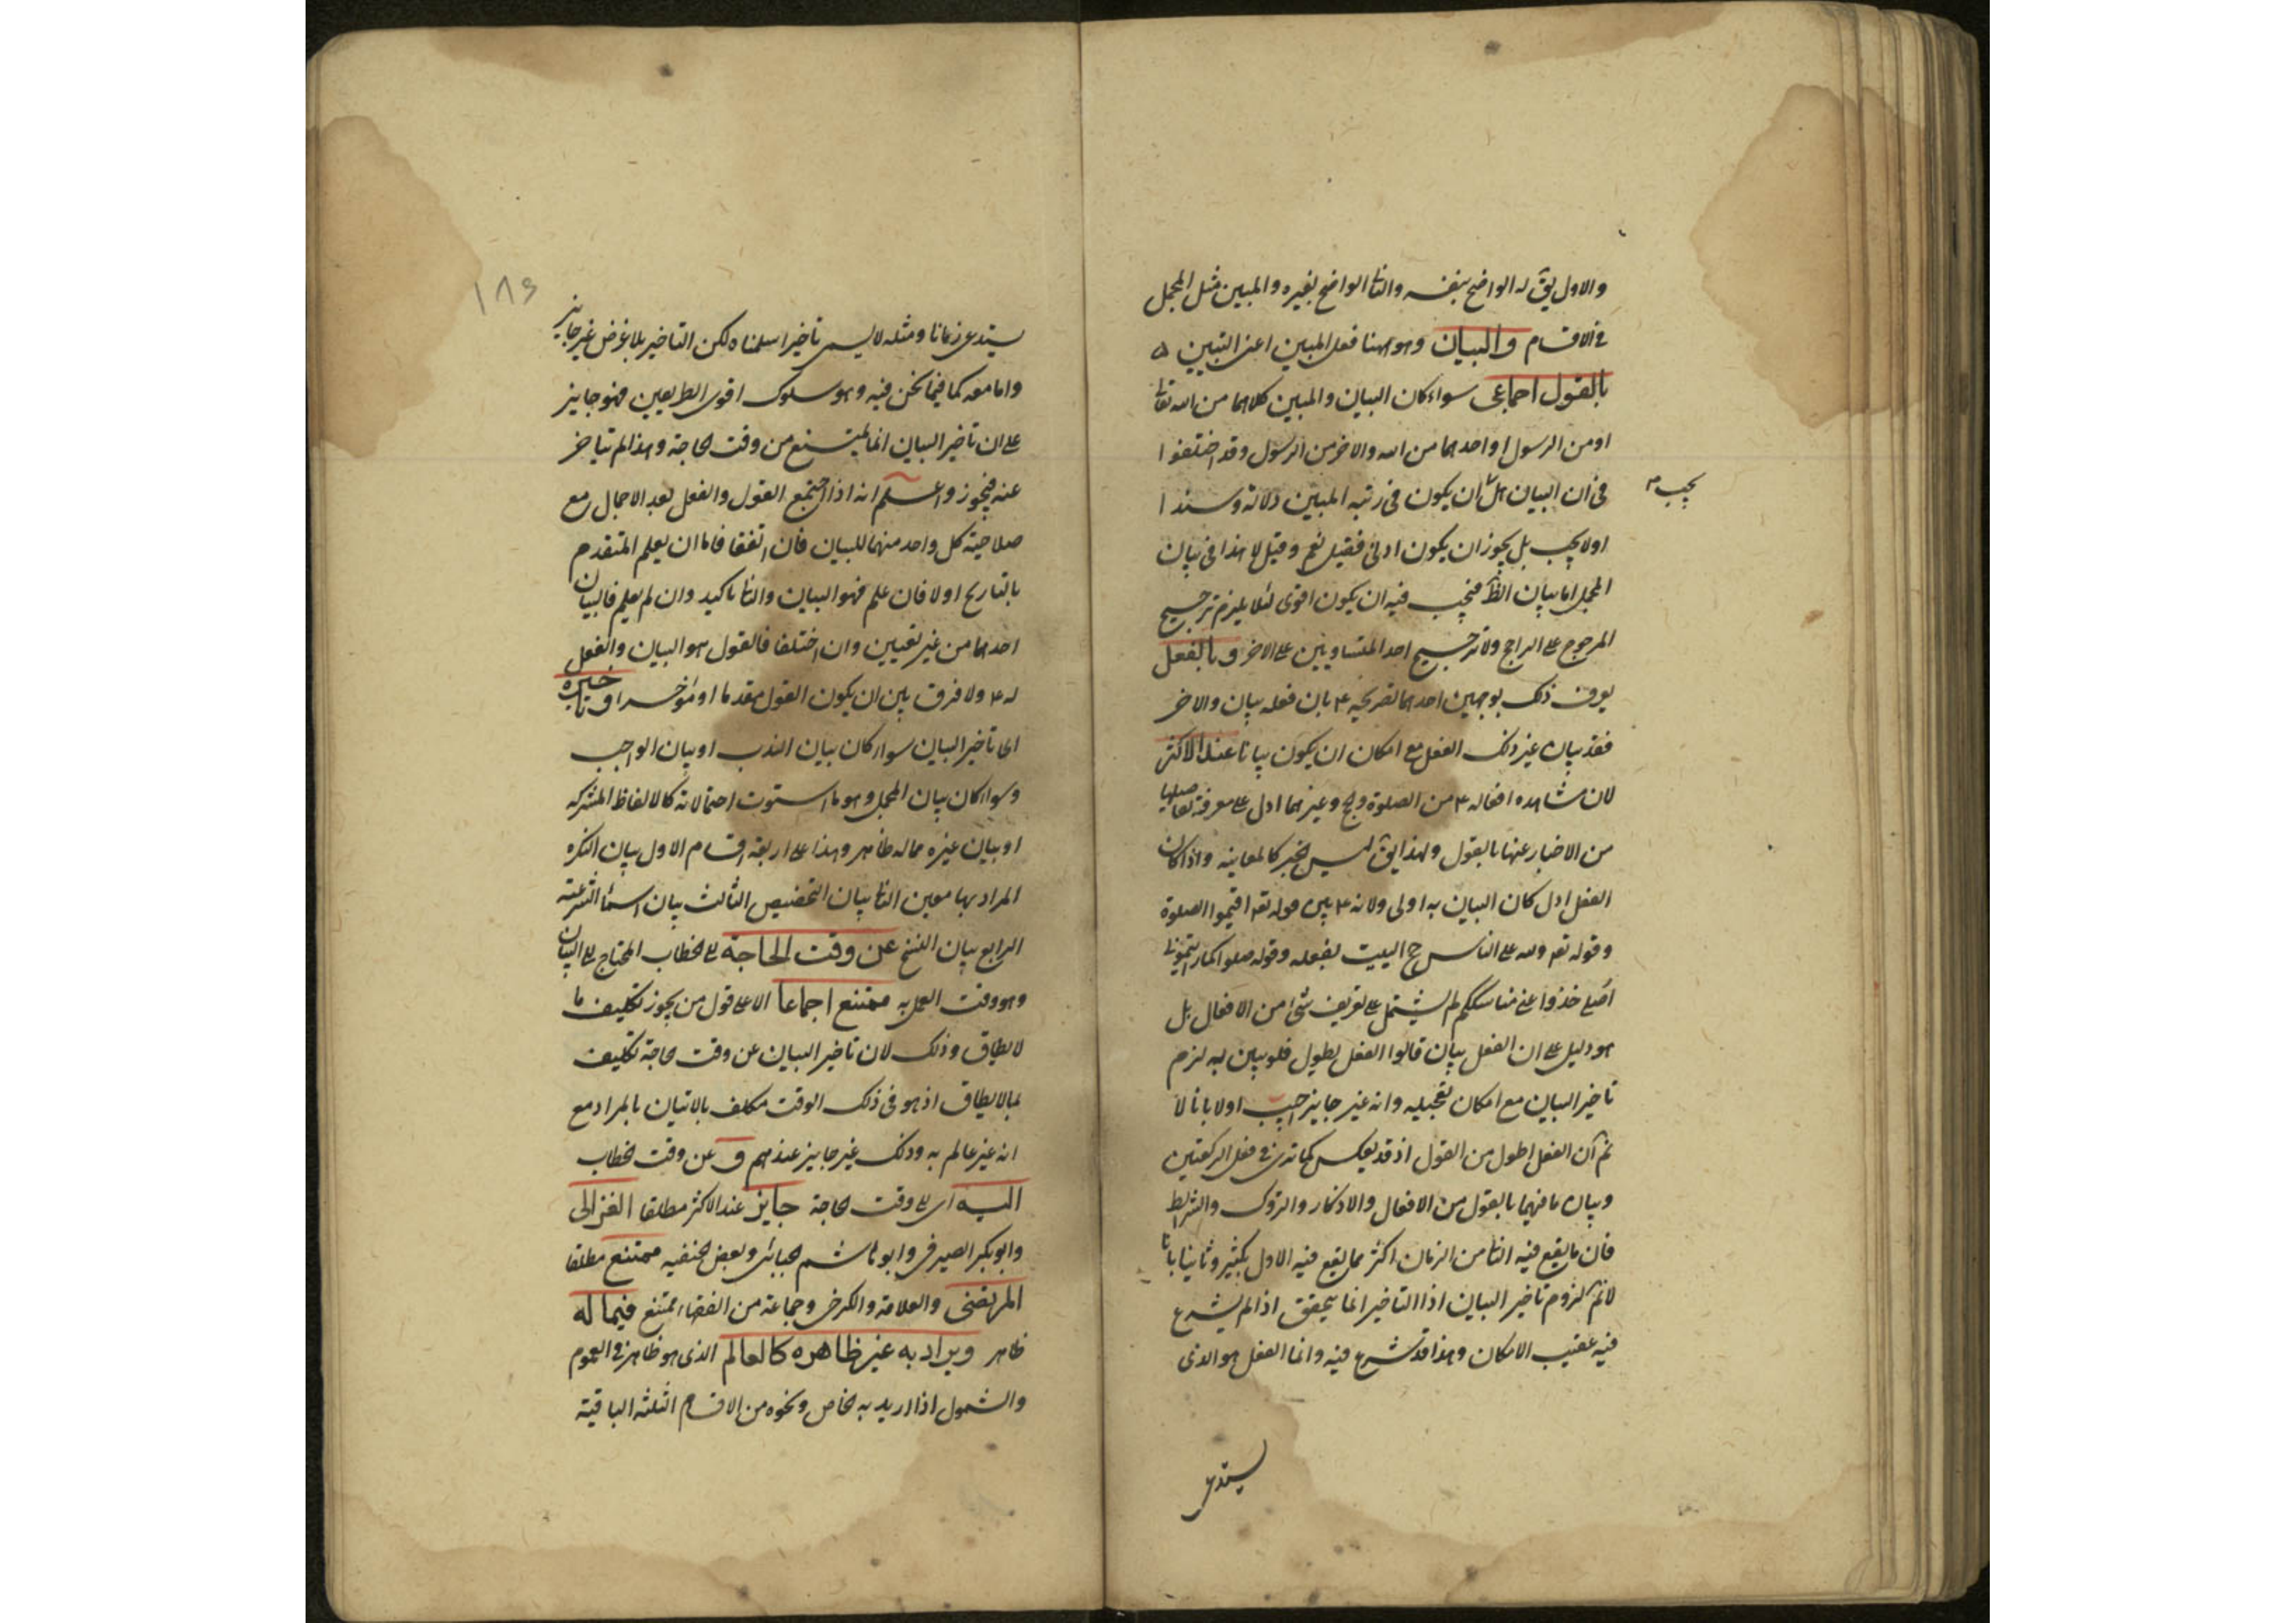 والاول يق له الواضح بنفسه والثا الواضح بغيره والمبين مثل المجمل
في الاقسام والبيان وهو ههنا فعل المبين اعنى التبيين
بالقول اجماعى سواء كان البيان والمبين كلاهما من الله تعالى
او من الرسول او احدهما من الله والاخر من الرسول وقد اختلفوا
فى ان البيان هل ان يكون فى رتبه المبين دلالة وسندا
يجب م
اولا يجب بل يجوز ان يكون ادنى فقيل نعم وقيل لا هذا فى بيان
المجمل اما بيان الظ فيجب فيه ان يكون اقوى لئلا يلزم ترجيح
المرجوح على الراجح ولا ترجيح احد المتساويين على الاخر و بالفعل
يعرف ذلك بوجهين احدهما تصريحه ع بان فعله بيان والاخر
فقد بيان غير ذلك الفعل مع امكان ان يكون بيانا عند الاكثر
لان مشاهده افعاله ع من الصلوة والحج وغيرهما ادل على معرفة تفاصيلها
من الاخبار عنها بالقول ولهذا يق ليس الخبر كالمعاينه واذا كان
الفعل ادل كان البيان به اولى ولانه ع بين قوله تعه اقيموا الصلوة
وقوله تعه ولله على الناس حج البيت بفعله وقوله صلوا كما رايتمونى
اصلى خذوا عنى مناسككم لم يشتمل على تعريف شئ من الافعال بل
هو دليل على ان الفعل بيان قالوا الفعل يطول فلو بين به لزم
تاخير البيان مع امكان تعجيله وانه غير جايز اجيب اولا بانا لا
نم ان الفعل اطول من القول اذ قد يعكس كما ترى فى فعل الركعتين
وبيان ما فيهما بالقول من الافعال والاذكار والتروك والشرايط
فان ما يقع فيه الثا من الزمان اكثر مما يقع فيه الاول بكثير وثانيا بانا
لا نم لزوم تاخير البيان اذ التاخير انما يتحقق اذا لم يشرع
فيه عقيب الامكان وهذا قد شرع فيه وانما الفعل هو الذى
يستدعى
١٨٦
يستدعى زمانا ومثله لا يسمى تاخيرا سلمناه لكن التاخير بلا غرض غير جايز
واما معه كما فيما نحن فيه وهو سلوك اقوى الطريقين فهو جايز
على ان تاخير البيان انما يمتنع من وقت الحاجة وهذا لم يتاخر
عنه فيجوز واعلم انه اذا اجتمع القول والفعل بعد الاجمال مع
صلاحية كل واحد منهما للبيان فان اتفقا فاما ان يعلم المتقدم
بالتاريخ اولا فان علم فهو البيان والثا تاكيد وان لم يعلم فالبيان
احدهما من غير تعيين وان اختلفا فالقول هو البيان والفعل
له ع ولا فرق بين ان يكون القول مقدما او مؤخرا و تاخيره
اى تاخير البيان سواء كان بيان الندب او بيان الواجب
وسواء كان بيان المجمل وهو ما استوت احتمالاته كالالفاظ المشتركه
او بيان غيره مما له ظاهر وهذا على اربعة اقسام الاول بيان النكره
المراد بها معين الثا بيان التخصيص الثالث بيان اسماء الشرعية
الرابع بيان النسخ عن وقت الحاجة اى الخطاب المحتاج الى البيان
وهو وقت العمل به ممتنع اجماعا الا على قول من يجوز تكليف ما
لا يطاق وذلك لان تاخير البيان عن وقت الحاجة تكليف
بما لا يطاق اذ هو فى ذلك الوقت مكلف بالاتيان بالمراد مع
انه غير عالم به وذلك غير جايز عندهم و عن وقت الخطاب
اليه اى الى وقت الحاجة جايز عند الاكثر مطلقا الغزالى
وابو بكر الصيرفى وابو هاشم الجبائى وبعض الحنفيه ممتنع مطلقا
المرتضى والعلامة والكرخى وجماعة من الفقهاء ممتنع فيما له
ظاهر ويراد به غير ظاهره كالعالم الذى هو ظاهر فى العموم
والشمول اذا اريد به الخاص ونحوه من الاقسام الثلثه الباقية